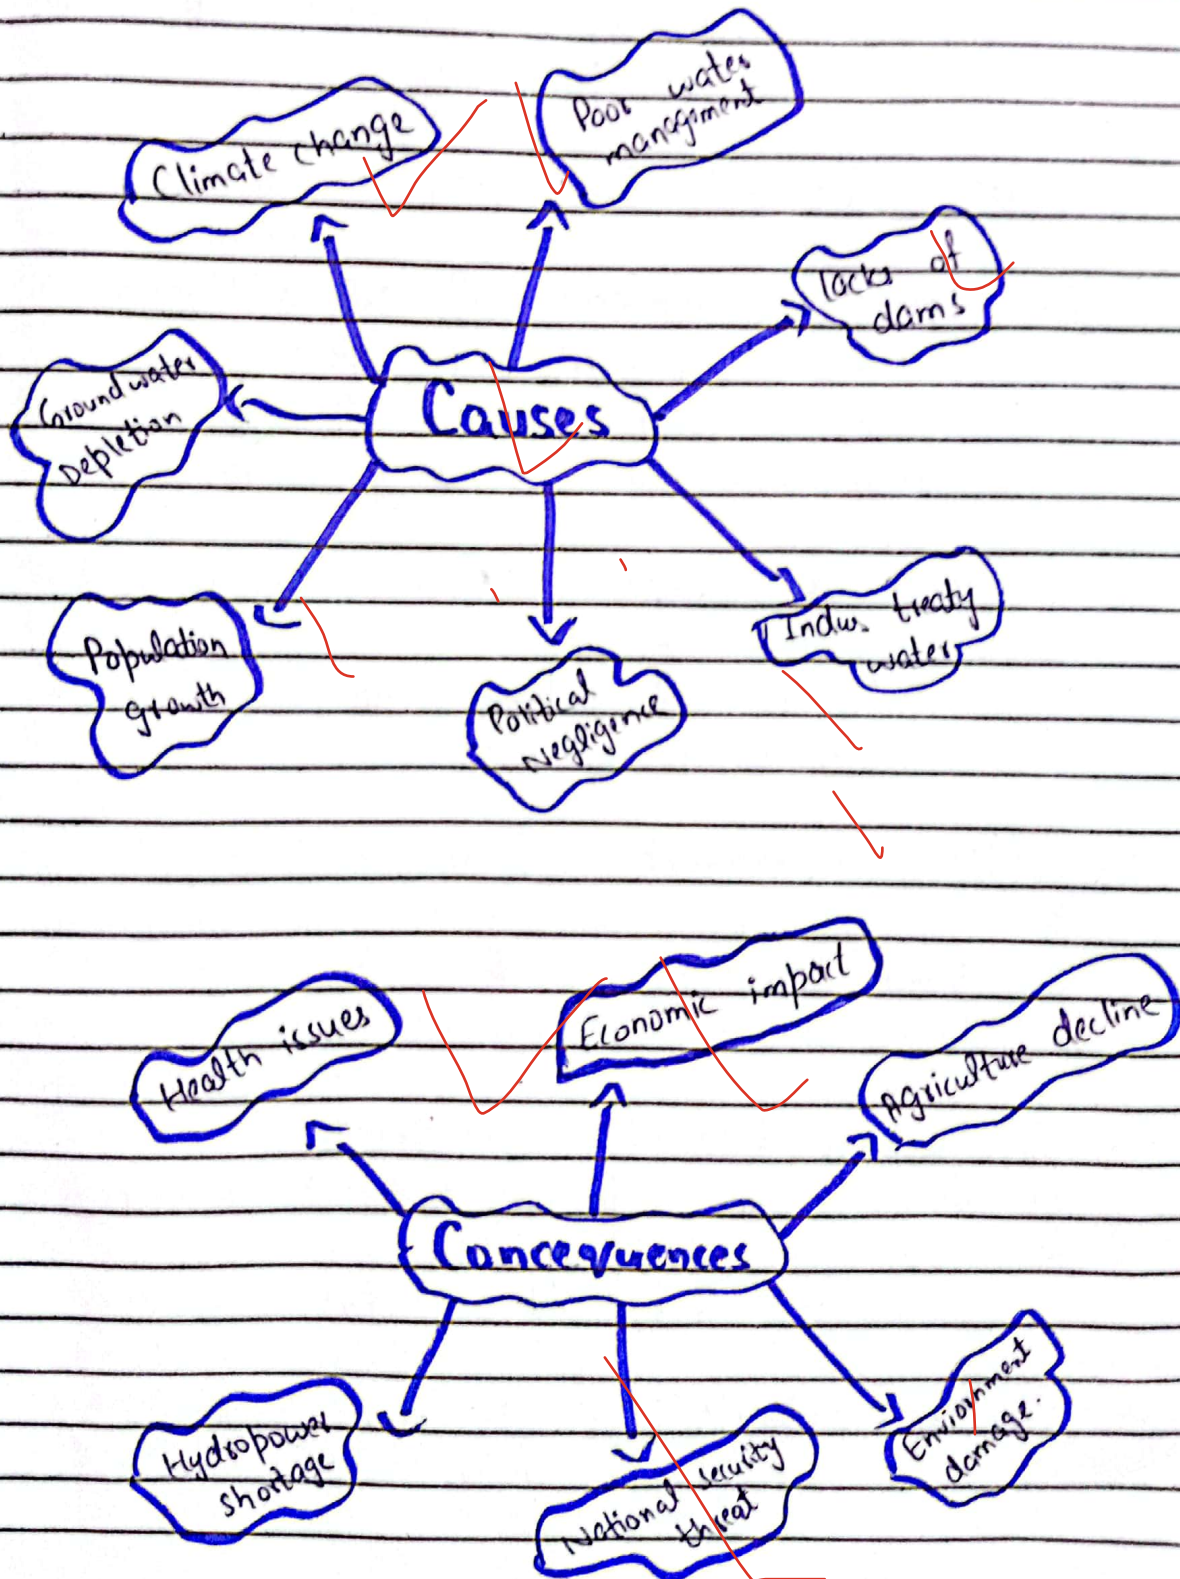 Climate change
Poor water
management
lacks of
dams
Groundwater
Depletion
Causes
Population
growth
Political
Negligence
Indus treaty
water
Health issues
Economic impact
Agriculture decline
Concequences
Hydropower
shortage
National security
threat
Enviornment
damage.